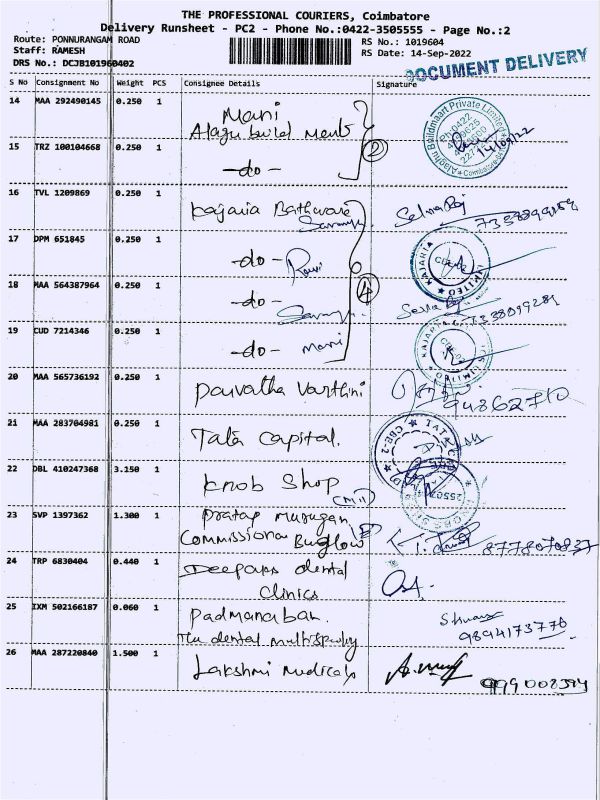 THE PROFESSIONAL COURIERS, Coimbatore
Delivery Runsheet - PC2 - Phone No.:0422-3505555 - Page No.:2
Route: PONNURANGAM ROAD
Staff: RAMESH
DRS No.: DCJB101960402
RS No.: 1019604
RS Date: 14-Sep-2022
DOCUMENT DELIVERY
S No Consignment No Weight PCS Consignee Details Signature
14 MAA 292490145 0.250 1 Mani
Alagu build Mart
14/09/22
15 TRZ 100104668 0.250 1 -do-
2
16 TVL 1209869 0.250 1 Kajaria Bathware
Selva Raj
17 DPM 651845 0.250 1 -do- Ravi
KAJARIA LIMITED
18 MAA 564387964 0.250 1 -do-
4
19 CUD 7214346 0.250 1 -do- Mani
20 MAA 565736192 0.250 1 Parvatha Varthini
21 MAA 283704981 0.250 1 Tata Capital.
CBE-2
22 DBL 410247368 3.150 1 Knob Shop
23 SVP 1397362 1.300 1 Pratap Murugan
Commissiona Buglow
8778070837
24 TRP 6830404 0.440 1 Deepams dental
Clinics
25 IXM 502166187 0.060 1 Padmanaban.
The dental
9894173770
26 MAA 287220840 1.500 1 Lakshmi Medicals